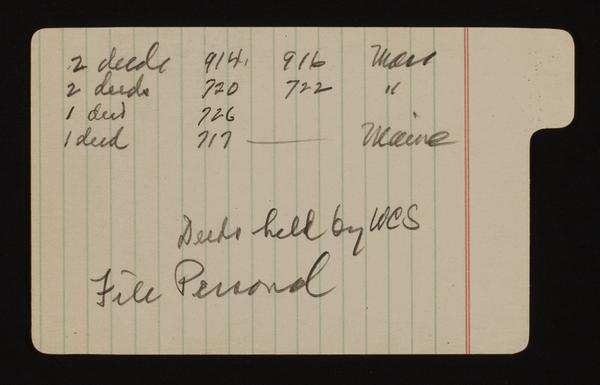 2 deeds 914 916 Mass
2 deeds 720 722 "
1 deed 726
1 deed 717 — Maine
Deeds held by WCS
File Personal